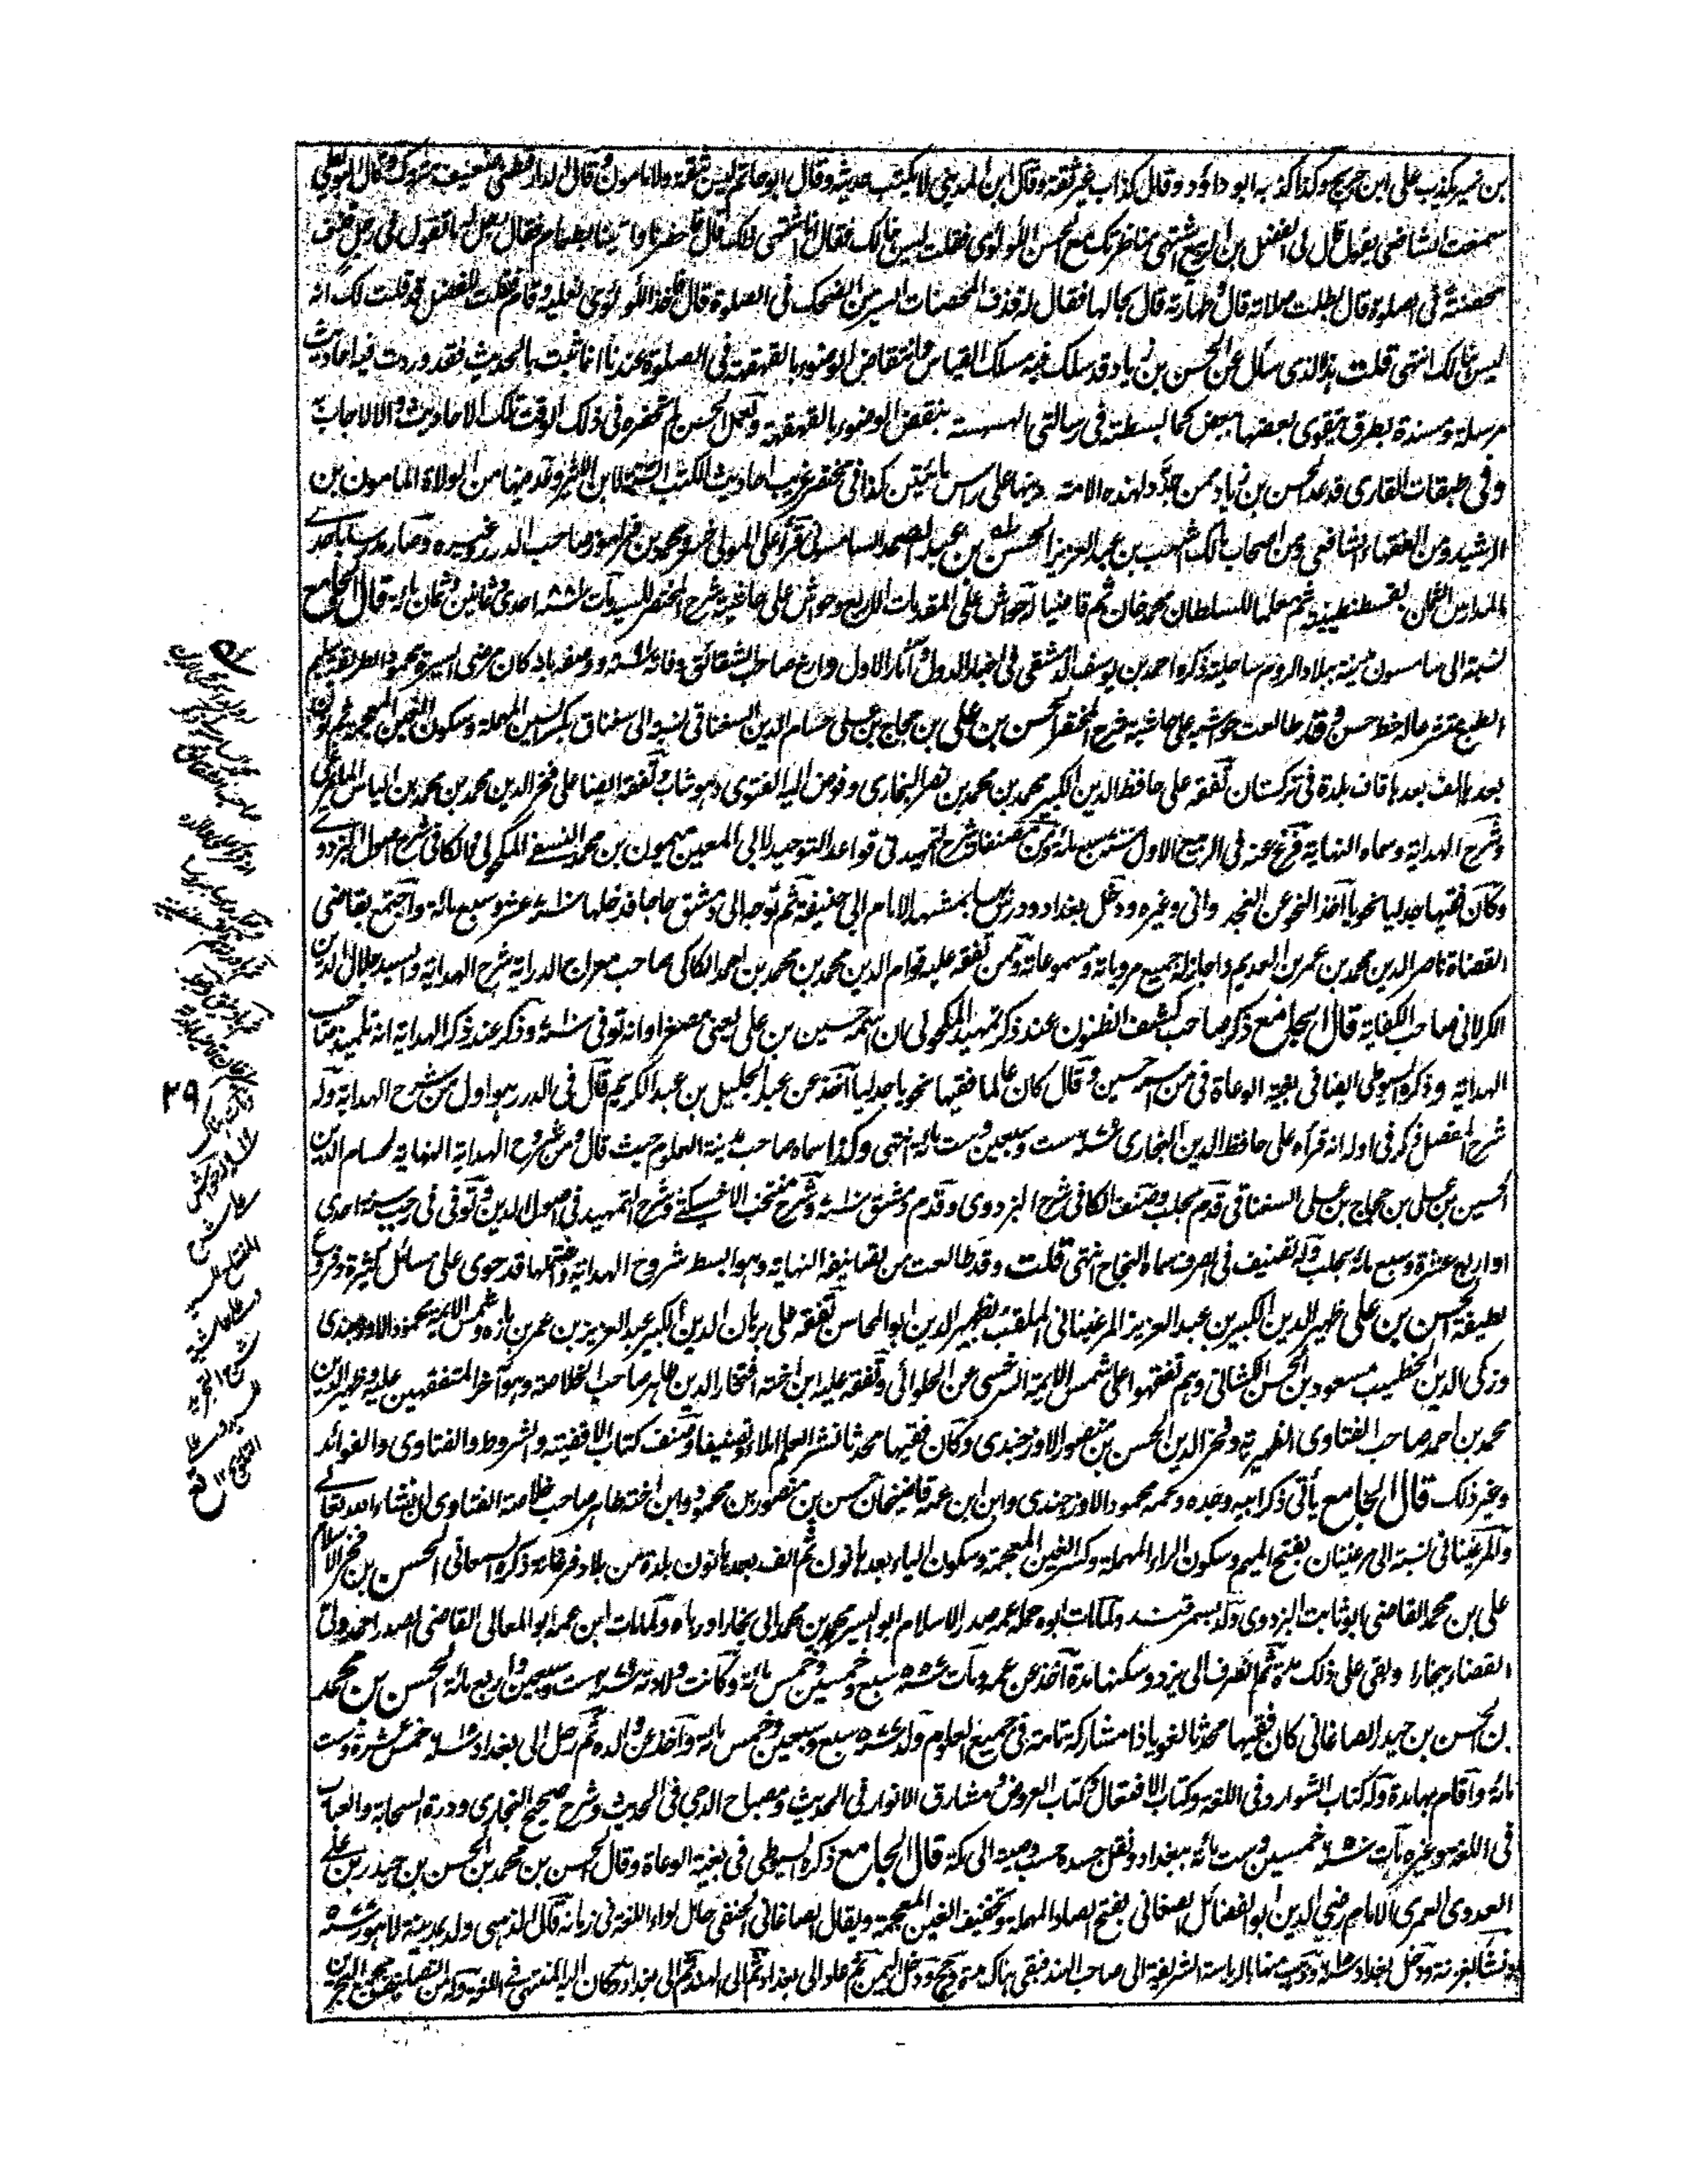 بن نمير يكذب على ابن جريج وكذا كذبه ابو داؤد وقال كذاب غير ثقة وقال ابن المديني لا يكتب حديثه وقال ابو حاتم ليس بثقة ولا مامون وقال الدارقطني ضعيف متروك وقال البويطي
سمعت الشافعي يقول قال لي الفضل بن الربيع اشتهي مناظرتك مع الحسن اللؤلوي فقلت ليس هنالك فقال انا اشتهي ذلك قال فاحضرنا واتينا بطعام فقال رجل لي ما تقول في رجل قذف
محصنة في الصلوة قال بطلت صلاته قال وطهارته قال بحالها فقال له قذف المحصنات ايسر من الضحك في الصلوة قال فاخذ اللؤلوئي نعليه وقام فقلت للفضل قد قلت لك انه
ليس هنالك انتهى قلت هذا الذي سأل عن الحسن بن زياد قد سلك فيه مسلك القياس وانتقاض الوضوء بالقهقهة في الصلوة عندنا انما ثبت بالحديث فقد وردت فيه احاديث
مرسلة ومسندة بطرق يتقوى بعضها ببعض كما بسطته في رسالتي الهسهسة بنقض الوضوء بالقهقهة ولعل الحسن لم تحضره في ذلك الوقت تلك الاحاديث والا لاجاب
وفي طبقات القاري قد عد الحسن بن زياد ممن جدد لهذه الامة دينها على راس مائتين كذا في مختصر غريب احاديث الكتب الستة لابن الاثير وقد منها من الولاة المامون بن
الرشيد ومن الفقهاء الشافعي ومن اصحاب مالك اشهب بن عبد العزيز الحسن بن عبد الصمد السامسوني قرأ على المولى خسرو محمد بن فراموز صاحب الدرر وغيره وصار مدرسا باحدى
المدارس الثمان بقسطنطينية ثم معلما للسلطان محمد خان ثم قاضيا له حواش على المقدمات الاربع وحواش على حاشية شرح المختصر للسيد ومات سنة ٨٨١ احدى وثمانين وثمان مائة قال الجامع
نسبة الى صامسون مدينة ببلاد الروم ساحلية ذكره احمد بن يوسف الدمشقي في اخبار الدول وآثار الاول وارخ صاحب الشقائق وفاته سنة ووصفه بانه كان مرضي السيرة محمود الطريقة سليم
الطبع متشرعا له خط حسن وقد طالعت حواشيه على حاشية شرح المختصر الحسن بن علي بن حجاج بن علي حسام الدين السغناقي نسبة الى سغناق بكسر السين المهملة وسكون الغين المعجمة ثم نون
بعدها الف بعدها قاف بلدة في تركستان تفقه على حافظ الدين الكبير محمد بن محمد بن نصر البخاري وفوض اليه الفتوى وهو شاب وتفقه ايضا على فخر الدين محمد بن محمد بن الياس المايمرغي
وشرح الهداية وسماه النهاية فرغ عنه في الربيع الاول سنة سبع مائة ومن مصنفاته شرح التمهيد في قواعد التوحيد لابي المعين ميمون بن محمد النسفي المكحولي والكافي شرح اصول البزدوي
وكان فقيها جدليا نحويا اخذ النحو عن الغجدواني وغيره ودخل بغداد ودرس بها بمشهد الامام ابي حنيفة ثم توجه الى دمشق حاجا فدخلها سنة عشر وسبع مائة واجتمع بقاضي
القضاة ناصر الدين محمد بن عمر بن العديم واجاز له جميع مروياته ومسموعاته وممن تفقه عليه قوام الدين محمد بن محمد بن احمد الكاكي صاحب معراج الدراية شرح الهداية والسيد جلال الدين
الكرلاني صاحب الكفاية قال الجامع ذكر صاحب كشف الظنون عند ذكر تمهيد المكحولي ان اسمه حسين بن علي يعني مصغرا وانه توفي سنة ٧١٠ وذكر عند ذكر الهداية انه تلميذ صاحب
الهداية وذكره السيوطي ايضا في بغية الوعاة في من اسمه حسين وقال كان عالما فقيها نحويا جدليا اخذ عن عبد الجليل بن عبد الكريم قال في الدرر هو اول من شرح الهداية وله
شرح المفصل ذكر في اوله انه قرأه على حافظ الدين البخاري سنة ٦٧٦ ست وسبعين وست مائة انتهى وكذا سماه صاحب مدينة العلوم حيث قال ومن شروح الهداية النهاية لحسام الدين
الحسين بن علي بن حجاج بن علي السغناقي قدم بحلب وصنف الكافي شرح البزدوي وقدم دمشق سنة ٧١٠ وشرح منتخب الاخسيكثي وشرح التمهيد في اصول الدين وتوفي في رجب سنة احدى
او اربع عشرة وسبع مائة بحلب وله تصنيف في الصرف سماه النجاح انتهى قلت وقد طالعت من تصانيفه النهاية وهو ابسط شروح الهداية واشملها قد حوى على مسائل كثيرة وفروع
لطيفة الحسن بن علي ظهير الدين الكبير بن عبد العزيز المرغيناني الملقب بظهير الدين ابو المحاسن تفقه على برهان الدين الكبير عبد العزيز بن عمر بن مازه وشمس الايمة محمود الاوزجندي
وزكي الدين الخطيب مسعود بن الحسن الكشاني وهم تفقهوا على شمس الايمة السرخسي عن الحلوائي وتفقه عليه ابن اخته افتخار الدين طاهر صاحب الخلاصة وهو آخر المتفقهين عليه وظهير الدين
محمد بن احمد صاحب الفتاوى الظهيرية وفخر الدين الحسن بن منصور الاوزجندي وكان فقيها محدثا نشر العلم املاء وتصنيفا وصنف كتاب الاقضية والشروط والفتاوى والفوائد
وغير ذلك قال الجامع يأتي ذكر ابيه وجده وعمه محمود الاوزجندي وابن ابن عمه قاضيخان حسن بن منصور بن محمود وابن اخته طاهر صاحب خلاصة الفتاوى ان شاء الله تعالى
والمرغيناني نسبة الى مرغينان بفتح الميم وسكون الراء المهملة وكسر الغين المعجمة وسكون الياء بعدها نون ثم الف بعدها نون بلدة من بلاد فرغانة ذكره السمعاني الحسن بن فخر الاسلام
علي بن محمد القاضي ابو ثابت البزدوي ولد بسمرقند ولما مات ابوه حمله عمه صدر الاسلام ابو اليسر محمد بن محمد الى بخارا ورباه ولما مات ابن عمه ابو المعالي القاضي الصدر احمد ولي
القضاء ببخارا وبقي على ذلك مدة ثم انصرف الى بزده وسكنها مدة اخذ عن عمه ومات سنة ٥٥٧ سبع وخمسين وخمس مائة وكانت ولادته سنة ست وسبعين واربع مائة الحسن بن محمد
بن الحسن بن حيدر الصاغاني كان فقيها محدثا لغويا ذا مشاركة تامة في جميع العلوم ولد سنة ٥٧٧ سبع وسبعين وخمس مائة واخذ عن والده ثم رحل الى بغداد سنة ٦١٥ خمس عشرة وست
مائة واقام بها مدة وله كتاب الشوارد في اللغة وكتاب الافتعال وكتاب العروض ومشارق الانوار في الحديث ومصباح الدجى في الحديث وشرح صحيح البخاري ودرة السحابة والعباب
في اللغة وغيره مات سنة ٦٥٠ خمسين وست مائة ببغداد ونقل جسده حسب وصيته الى مكة قال الجامع ذكره السيوطي في بغية الوعاة وقال الحسن بن محمد بن الحسن بن حيدر بن علي
العدوي العمري الامام رضي الدين ابو الفضائل الصغاني بفتح الصاد المهملة وتخفيف الغين المعجمة ويقال الصاغاني الحنفي حامل لواء اللغة في زمانه قال الذهبي ولد بمدينة لاهور سنة ٥٧٧
ونشأ بغزنة ودخل بغداد سنة ٦١٥ وذهب منها بالرياسة الشريفة الى صاحب الهند فبقي هناك مدة وحج ودخل اليمن ثم عاد الى بغداد ثم الى الهند ثم الى بغداد وكان اليه المنتهى في اللغة وله من التصانيف مجمع البحرين
٢٩